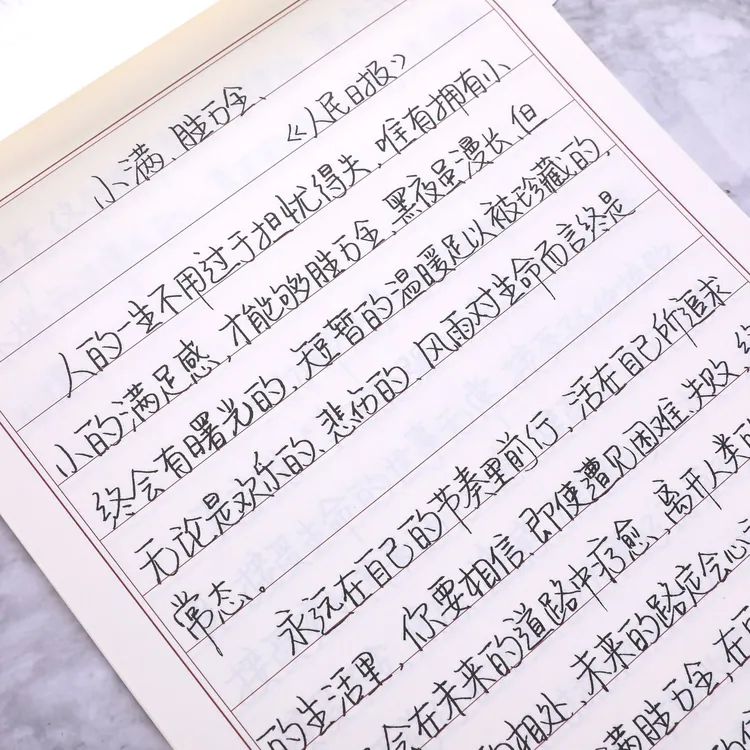 小满、胜万全、
《人民日报》
人的一生不用过于担忧得失、唯有拥有小
小的满足感,才能够胜万全、黑夜虽漫长,但
终会有曙光的、短暂的温暖足以被珍藏的,
无论是欢乐的、悲伤的、风雨对生命而言终是
常态。
永远在自己的节奏里前行,活在自己所追求
的生活里,你要相信,即使遭见困难、失败,终
会在未来的道路中疗愈、离开人类的
的相处,未来的路定会心
满胜万全,在